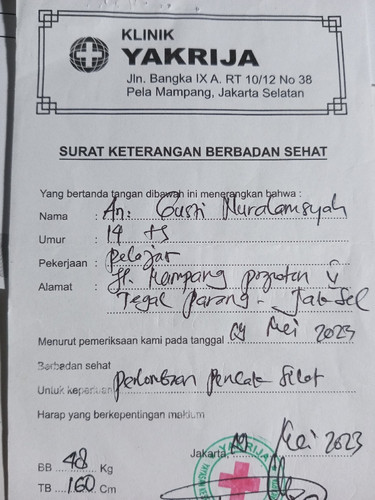 KLINIK
YAKRIJA
Jln. Bangka IX A. RT 10/12 No 38
Pela Mampang, Jakarta Selatan
SURAT KETERANGAN BERBADAN SEHAT
Yang bertanda tangan dibawah ini menerangkan bahwa :
Nama : An. Gusti Nuralamsyah
Umur : 14 th
Pekerjaan : pelajar
Alamat : Jl. Mampang prapatan V
Tegal parang - Jak-Sel
Menurut pemeriksaan kami pada tanggal 29 Mei 2023
Berbadan sehat
Untuk keperluan perlombaan pencak silat
Harap yang berkepentingan maklum
Jakarta, 29 Mei 2023
YAKRIJA
BB : 48 Kg
TB : 160 Cm